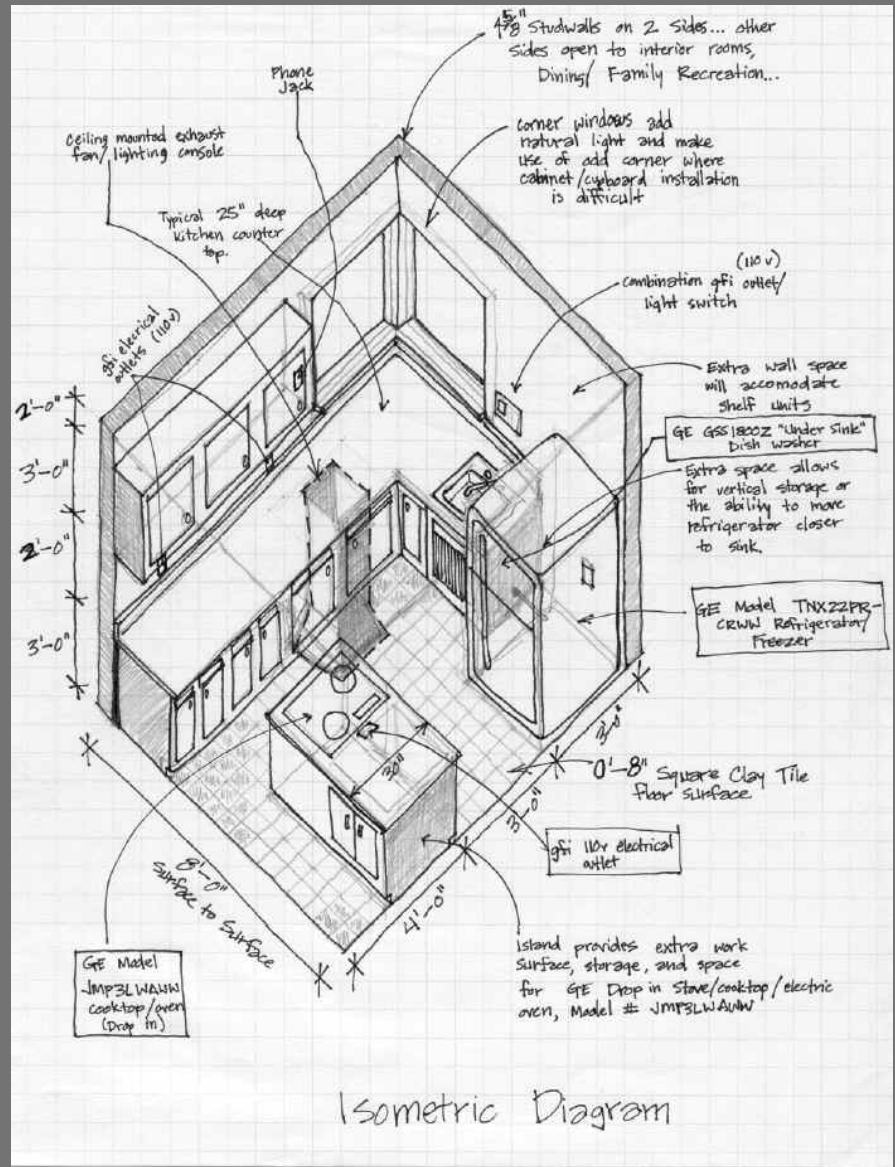 4 5/8" Studwalls on 2 Sides... other
Sides open to interior rooms,
Dining/ Family Recreation...
Phone
Jack
Ceiling mounted exhaust
fan/lighting console
corner windows add
natural light and make
use of odd corner where
cabinet/cupboard installation
is difficult
Typical 25" deep
kitchen counter
top.
(110 v)
combination gfi outlet/
light switch
gfi electrical
outlets (110v)
Extra wall space
will accomodate
shelf units
2'-0"
3'-0"
2'-0"
3'-0"
GE GSS1800Z "Under Sink"
Dish washer
Extra space allows
for vertical storage or
the ability to move
refrigerator closer
to sink.
GE Model TNX22PR-
CRWW Refrigerator/
Freezer
30"
3'-0"
0'-8" Square Clay Tile
floor surface
3'-0"
gfi 110v electrical
outlet
4'-0"
8'-0"
Surface to Surface
GE Model
JMP3LWAWW
cooktop/oven
(Drop in)
Island provides extra work
Surface, storage, and space
for GE Drop in Stove/cooktop/electric
oven, Model # JMP3LWAWW
Isometric Diagram